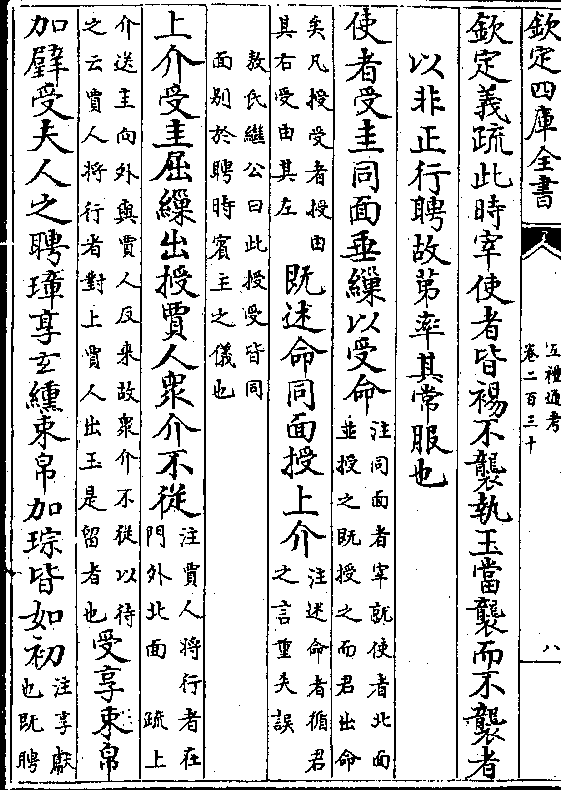 欽定四庫全書
五禮通考
卷二百三十
八
欽定義疏此時宰使者皆裼不襲執玉當襲而不襲者
以非正行聘故苐率其常服也
使者受圭同面垂繅以受命
注同面者宰就使者北面
並授之既授之而君出命
矣凡授受者授由
其右受由其左
既述命同面授上介
注述命者循君
之言重失誤
敖氏繼公曰此授受皆同
面别於聘時賓主之儀也
上介受圭屈繅出授賈人衆介不從
注賈人將行者在
門外北面 疏上
介送圭向外與賈人反來故衆介不從以待
之云賈人將行者對上賈人出玉是留者也
受享束帛
加璧受夫人之聘璋享玄纁束帛加琮皆如初
注享獻
也既聘